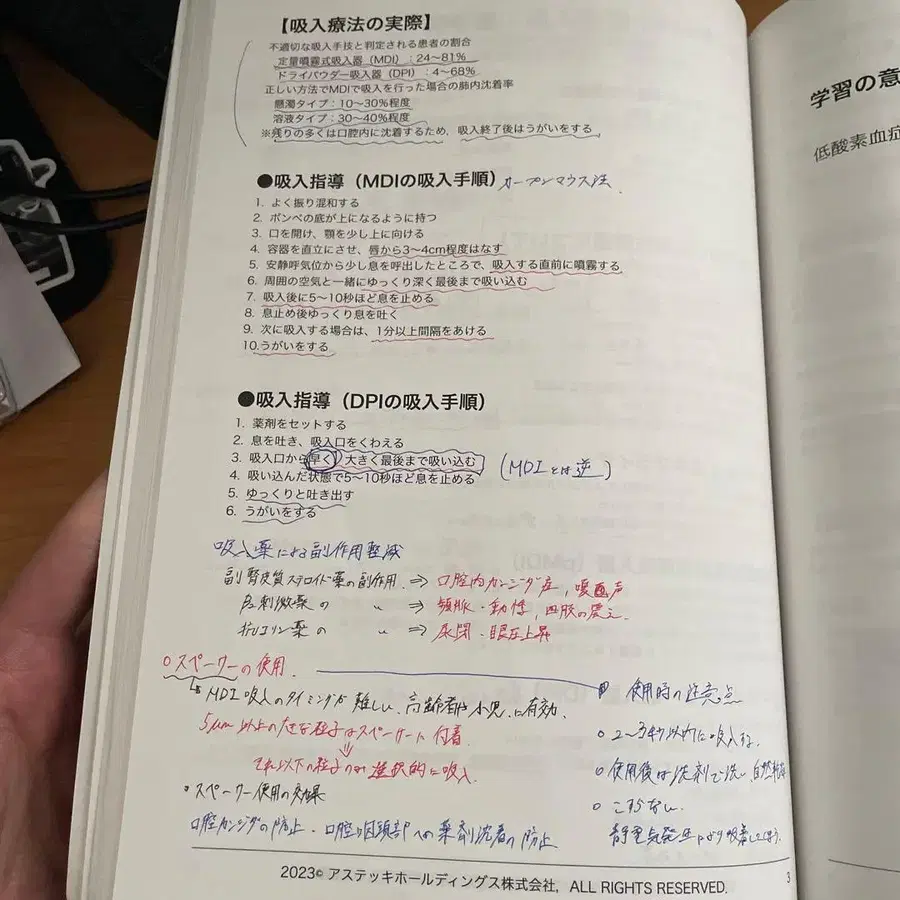 【吸入療法の実際】
不適切な吸入手技と判定される患者の割合
定量噴霧式吸入器（MDI）：24〜81%
ドライパウダー吸入器（DPI）：4〜68%
正しい方法でMDIで吸入を行った場合の肺内沈着率
懸濁タイプ：10〜30%程度
溶液タイプ：30〜40%程度
※残りの多くは口腔内に沈着するため、吸入終了後はうがいをする
●吸入指導（MDIの吸入手順）オープンマウス法
1. よく振り混和する
2. ボンベの底が上になるように持つ
3. 口を開け、顎を少し上に向ける
4. 容器を直立にさせ、唇から3〜4cm程度はなす
5. 安静呼気位から少し息を呼出したところで、吸入する直前に噴霧する
6. 周囲の空気と一緒にゆっくり深く最後まで吸い込む
7. 吸入後に5〜10秒ほど息を止める
8. 息止め後ゆっくり息を吐く
9. 次に吸入する場合は、1分以上間隔をあける
10.うがいをする
●吸入指導（DPIの吸入手順）
1. 薬剤をセットする
2. 息を吐き、吸入口をくわえる
3. 吸入口から早く、大きく最後まで吸い込む (MDIとは逆)
4. 吸い込んだ状態で5〜10秒ほど息を止める
5. ゆっくりと吐き出す
6. うがいをする
吸入薬による副作用軽減
副腎皮質ステロイド薬の副作用 ⇒ 口腔内カンジダ症, 嗄声
β刺激薬の 〃 ⇒ 頻脈・動悸, 四肢の震え
抗コリン薬の 〃 ⇒ 尿閉・眼圧上昇
○スペーサーの使用
MDI吸入のタイミングが難しい、高齢者や小児に有効、
5μm以上の大きな粒子はスペーサーに付着
⇓
それ以下の粒子のみ選択的に吸入
・スペーサー使用の効果
口腔カンジダの防止・口腔や咽頭部への薬剤沈着の防止
使用時の注意点
○ 2〜3秒以内に吸入する.
○ 使用後は洗剤で洗い自然乾燥
○ こすらない.
静電気発生により吸着してしまう.
2023© アステッキホールディングス株式会社, ALL RIGHTS RESERVED.
3
学習の意
低酸素血症